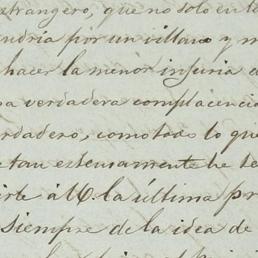 strangero, que no solo en la
endria por un villano y m
hacer la menor injuria a
na verdadera complacencia
erdadero, como todo lo que
e tan estensamente he te
irle á V. la última pr
siempre de la idea de